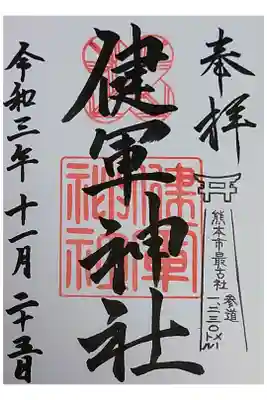 奉拝
熊本市最古社
参道
一二三〇メートル
健軍神社
健軍
神社
令和三年十一月二十五日